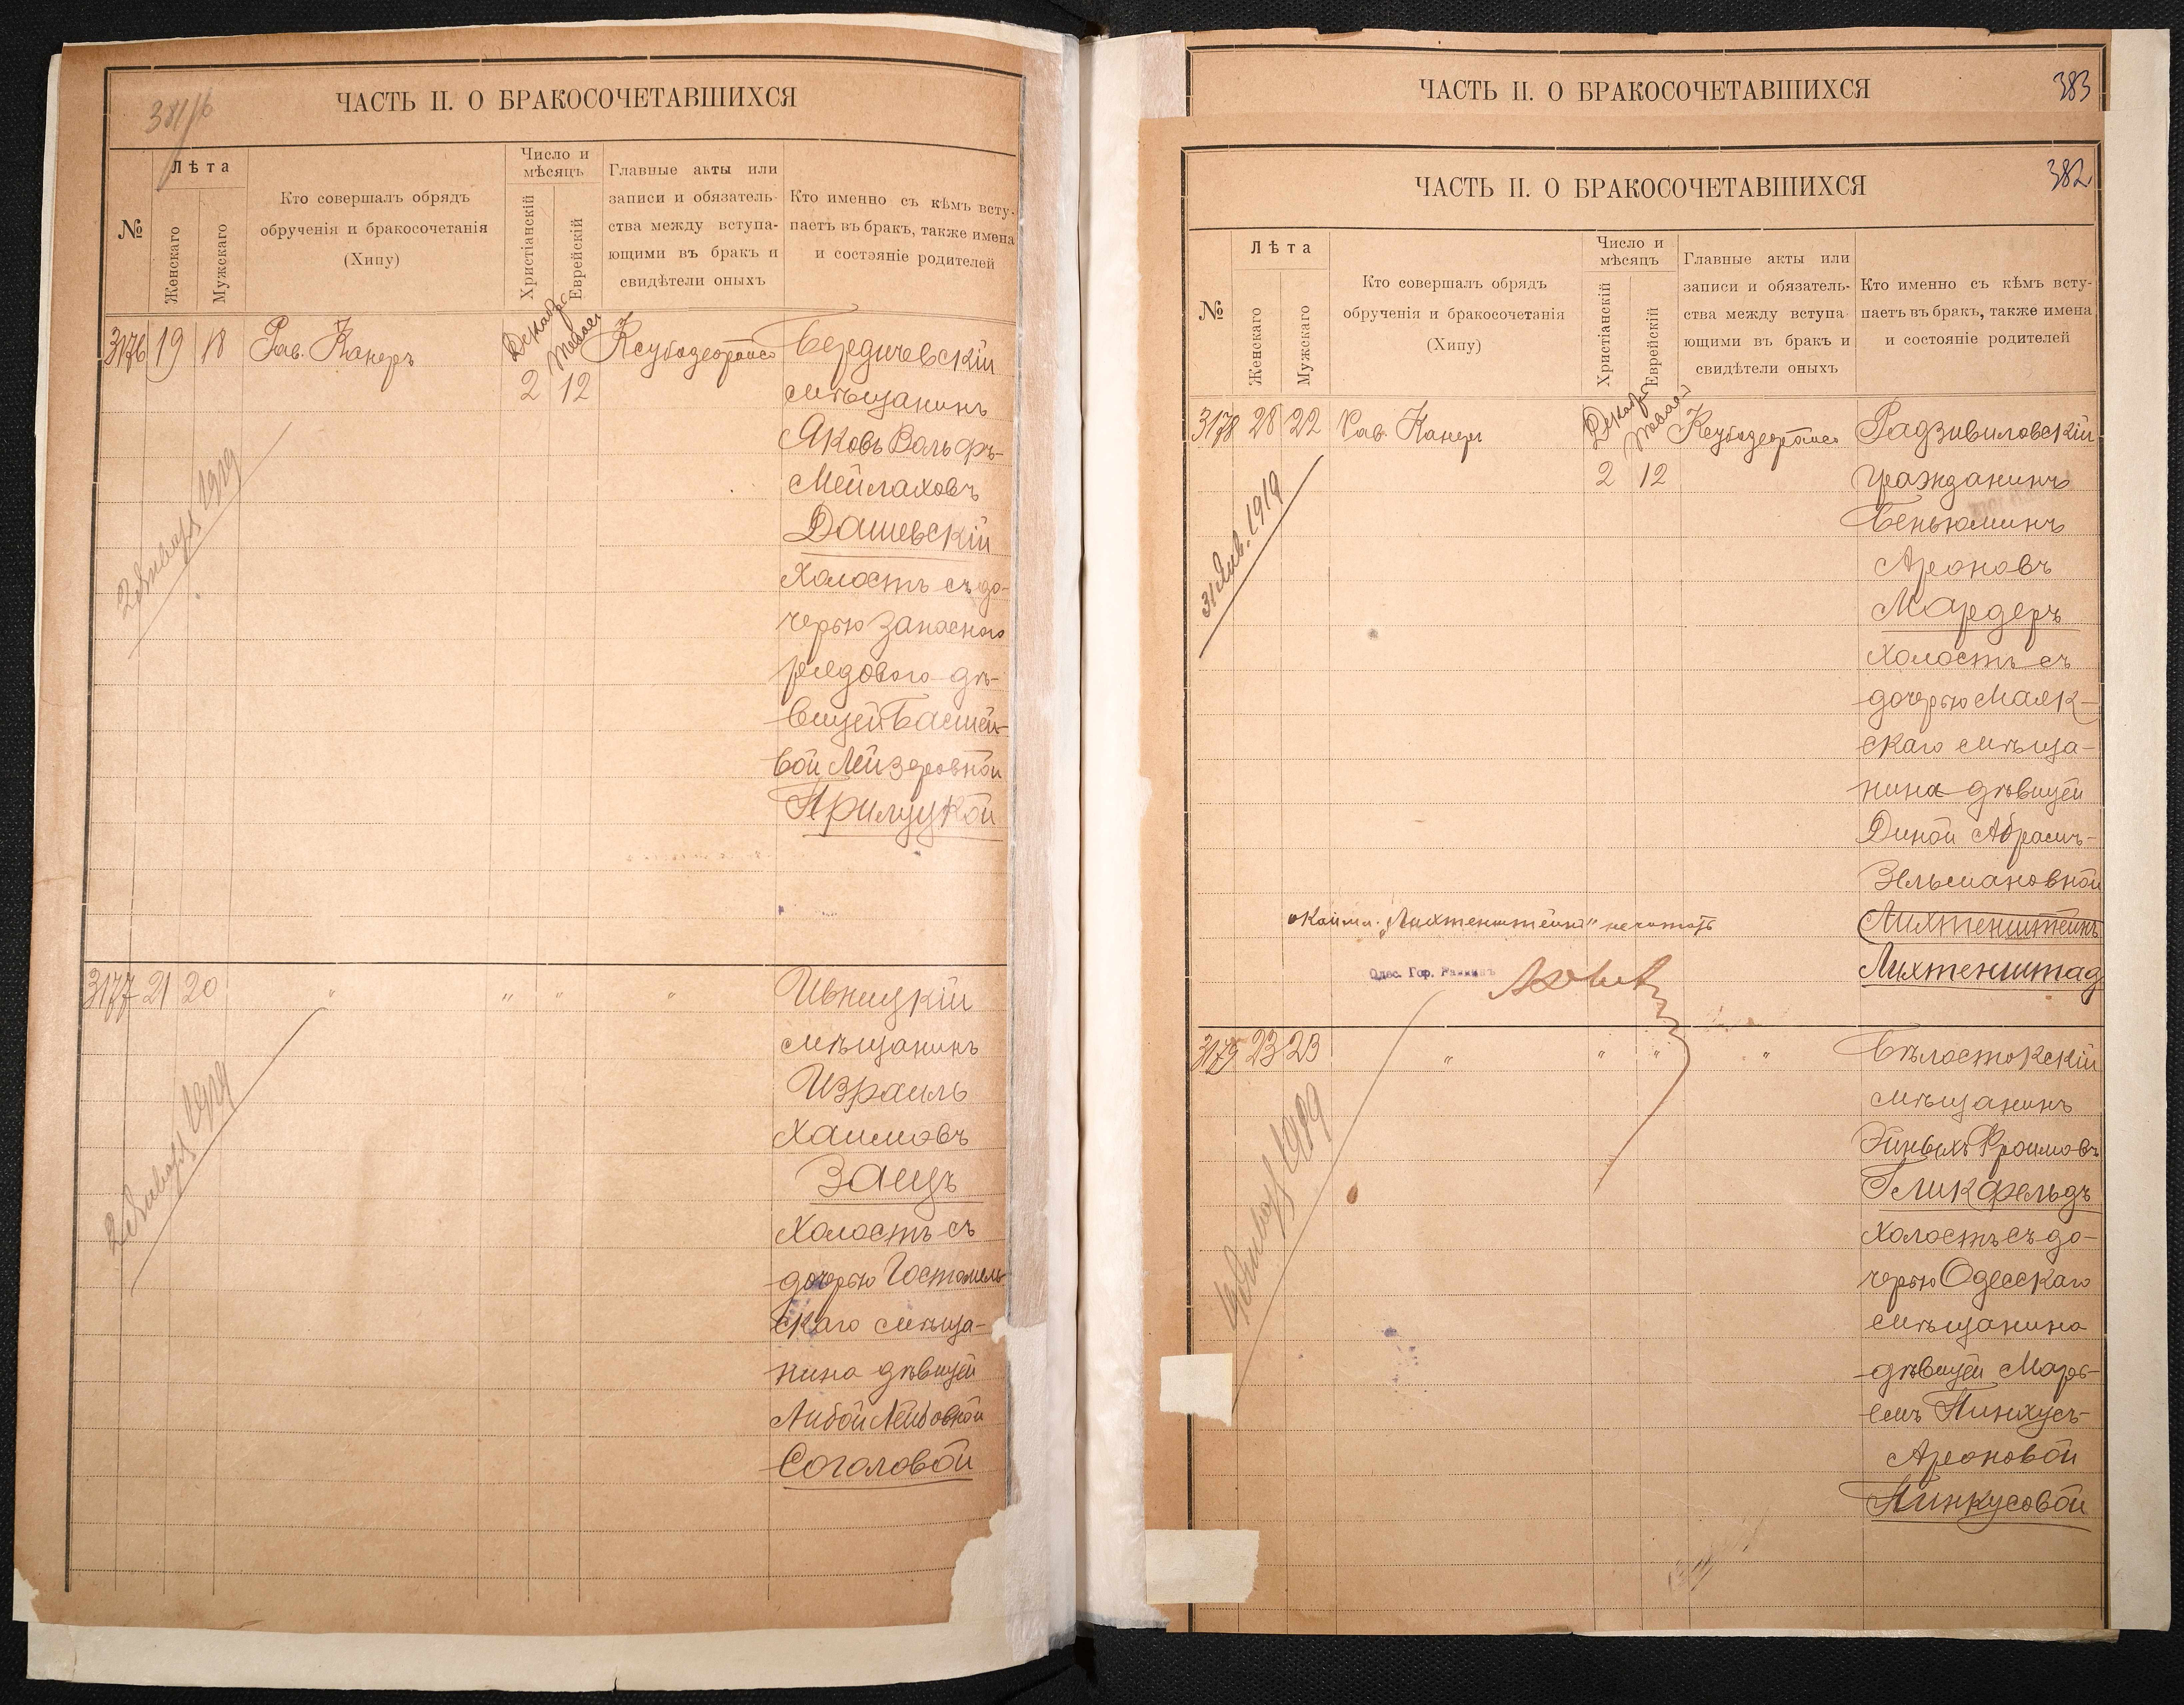 381/б
ЧАСТЬ II. О БРАКОСОЧЕТАВШИХСЯ
№
Лѣта
Женскаго
Мужскаго
Кто совершалъ обрядъ
обрученія и бракосочетанія
(Хипу)
Число и
мѣсяцъ
Христіанскій
Еврейскій
Главные акты или
записи и обязатель-
ства между вступа-
ющими въ бракъ и
свидѣтели оныхъ
Кто именно съ кѣмъ всту-
паетъ въ бракъ, также имена
и состояніе родителей
3176 19 18 Рав. Канеръ
2 12
Бердичевскій
мѣщанинъ
Яковъ Вольфъ-
Мейлаховъ
Дашевскій
холостъ съ до-
черью запаснаго
рядового дѣ-
вицей Басшей-
вой Лейзеровной
Прилуцкой
2 Января 1919
3177 21 20 " " " "
Ивницкій
мѣщанинъ
Израиль
Хаимовъ
Заецъ
холостъ съ
дочерью Гостомель-
скаго мѣща-
нина дѣвицей
Либой Лейбовной
Соголовой
2 Января 1919
383
ЧАСТЬ II. О БРАКОСОЧЕТАВШИХСЯ
382
ЧАСТЬ II. О БРАКОСОЧЕТАВШИХСЯ
№
Лѣта
Женскаго
Мужскаго
Кто совершалъ обрядъ
обрученія и бракосочетанія
(Хипу)
Число и
мѣсяцъ
Христіанскій
Еврейскій
Главные акты или
записи и обязатель-
ства между вступа-
ющими въ бракъ и
свидѣтели оныхъ
Кто именно съ кѣмъ всту-
паетъ въ бракъ, также имена
и состояніе родителей
3178 28 22 Рав. Канеръ
2 12
Радзивиловскій
гражданинъ
Беньюминъ
Ароновъ
Мардеръ
холостъ съ
дочерью Маяк-
скаго мѣща-
нина дѣвицей
Диной Абрамъ-
Зельмановной
Лихтенштейнъ
Лихтенштад
31 Янв. 1919
"Лихтенштейнъ" не читать
Одес. Гор. Раввинъ
3179 23 23 " " " "
Бѣлостокскій
мѣщанинъ
Фроимовъ
Гликфельдъ
холостъ съ до-
черью Одесскаго
мѣщанина
дѣвицей Марь-
емъ Пинхусъ-
Ароновой
Пинкусовой
Января 1919